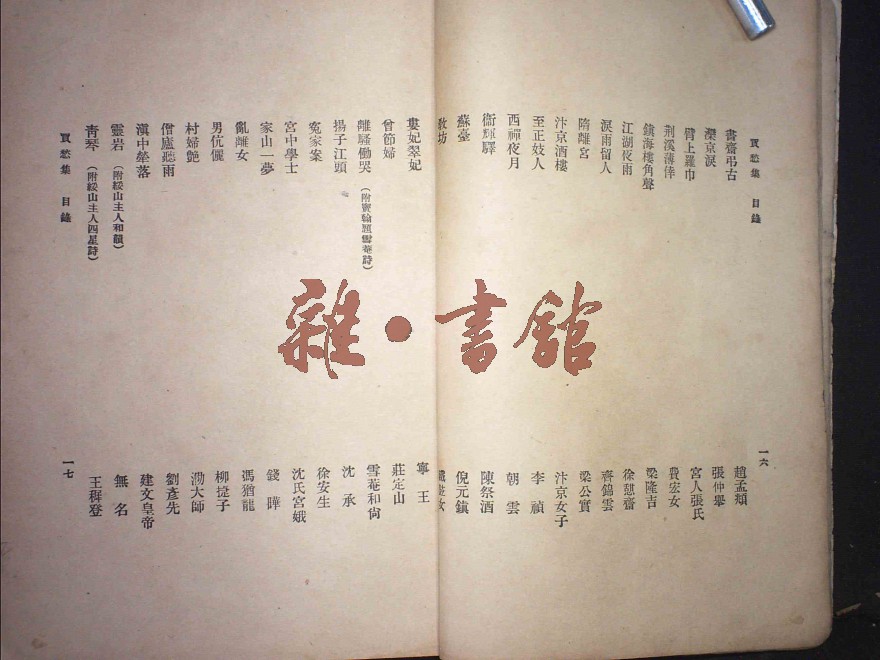 買愁集 目錄
書齋弔古 趙孟頫
瀠京淚 張仲舉
臂上羅巾 宮人張氏
荆溪薄倖 費宏女
鎮海樓角聲 梁隆吉
江湖夜雨 徐憇齋
淚雨留人 齊錦雲
隋離宮 梁公實
汴京酒樓 汴京女子
至正妓人 李禎
西禪夜月 朝雲
衞輝驛 陳祭酒
蘇臺 倪元鎮
教坊 鐵鉉女
一六
婁妃翠妃 寧王
曾節婦 莊定山
離騷慟哭 (附竇翰題雪菴詩) 雪菴和尙
揚子江頭 沈承
冤家案 徐安生
宮中學士 沈氏宮娥
家山一夢 錢曄
亂離女 馮猶龍
男伉儷 柳㨗子
村婦艷 泐大師
僧廬聽雨 劉彥先
滇中犖落 建文皇帝
靈岩 (附綏山主人和韻) 無名
靑琴 (附綏山主人四星詩) 王穉登
買愁集 目錄
一七
雜·書館